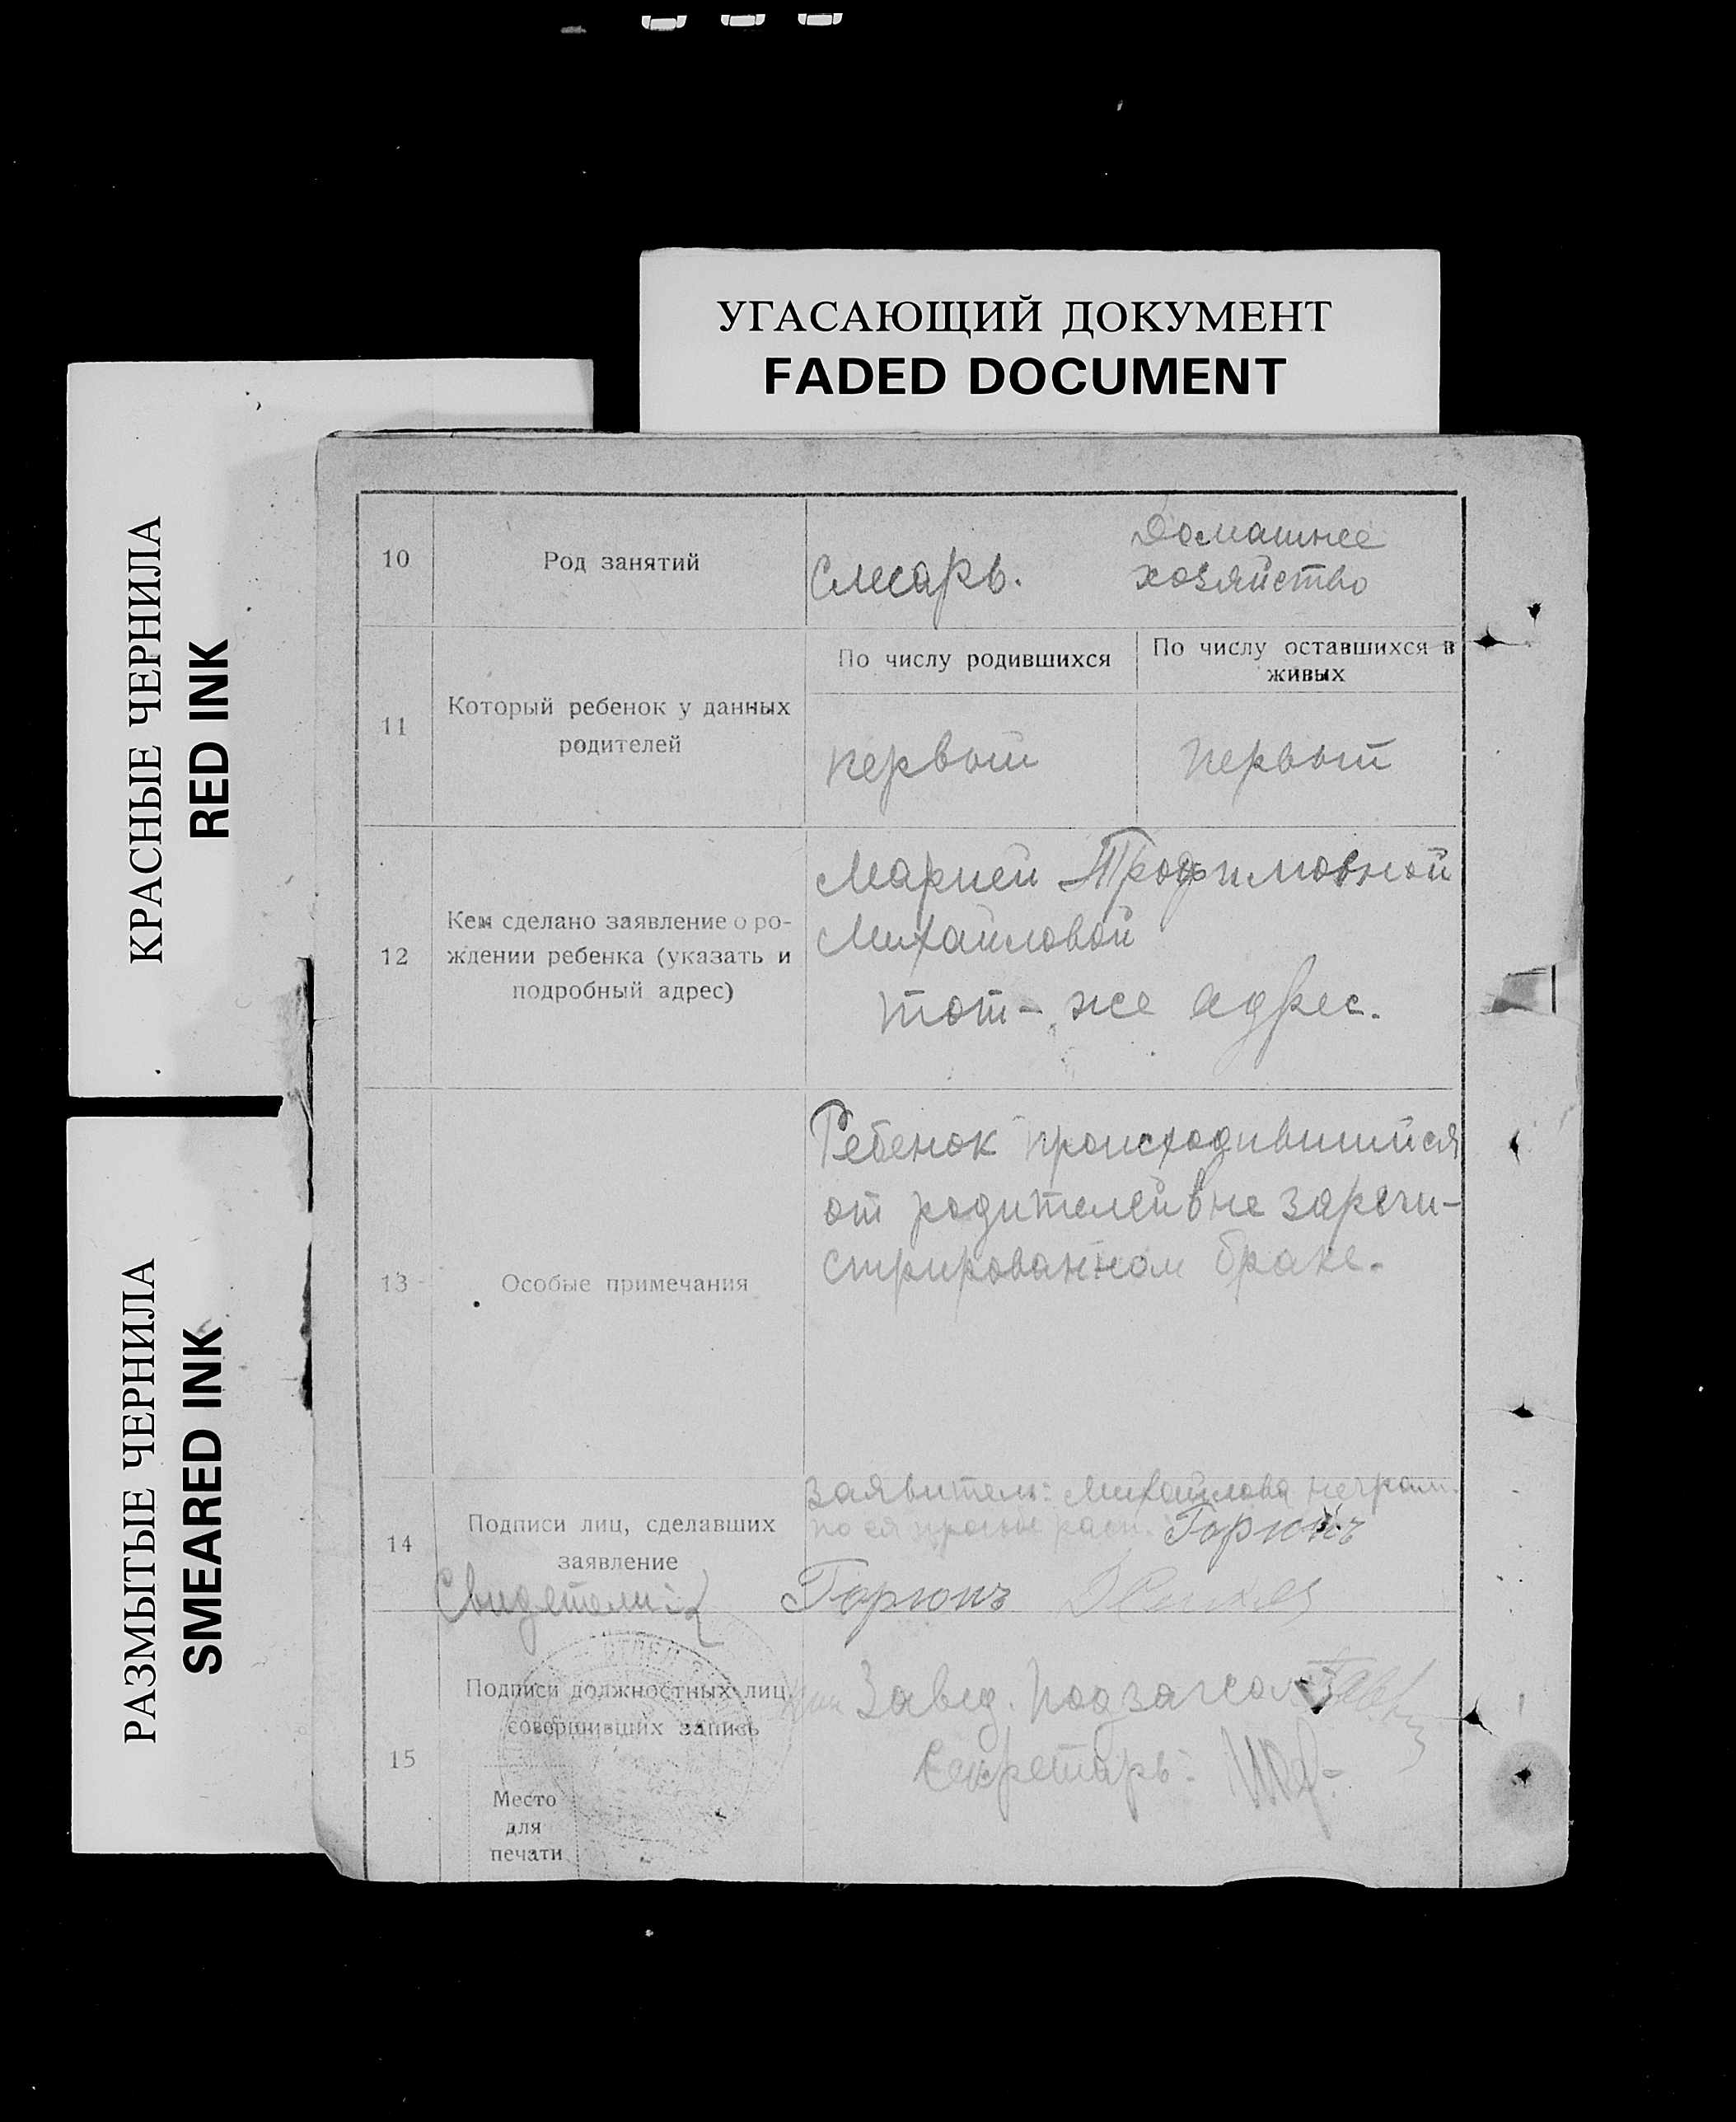 УГАСАЮЩИЙ ДОКУМЕНТ
FADED DOCUMENT
КРАСНЫЕ ЧЕРНИЛА
RED INK
РАЗМЫТЫЕ ЧЕРНИЛА
SMEARED INK
10
Род занятий
Слесарь.
Домашнее
хозяйство
11
Который ребенок у данных
родителей
По числу родившихся
По числу оставшихся в
живых
первый
первый
12
Кем сделано заявление о ро-
ждении ребенка (указать и
подробный адрес)
Марией Трофимовной
Михайловой
тот-же адрес.
13
Особые примечания
Ребенок происходившийся
от родителей вне зареги-
стрированном браке.
14
Подписи лиц, сделавших
заявление
Заявитель: Михайлова неграм.
по ея просьбе расп. Горюнъ
Свидетели:
Горюнъ
15
Подписи должностных лиц,
совершивших запись
Завед. подзагсом
Секретарь:
Место
для
печати